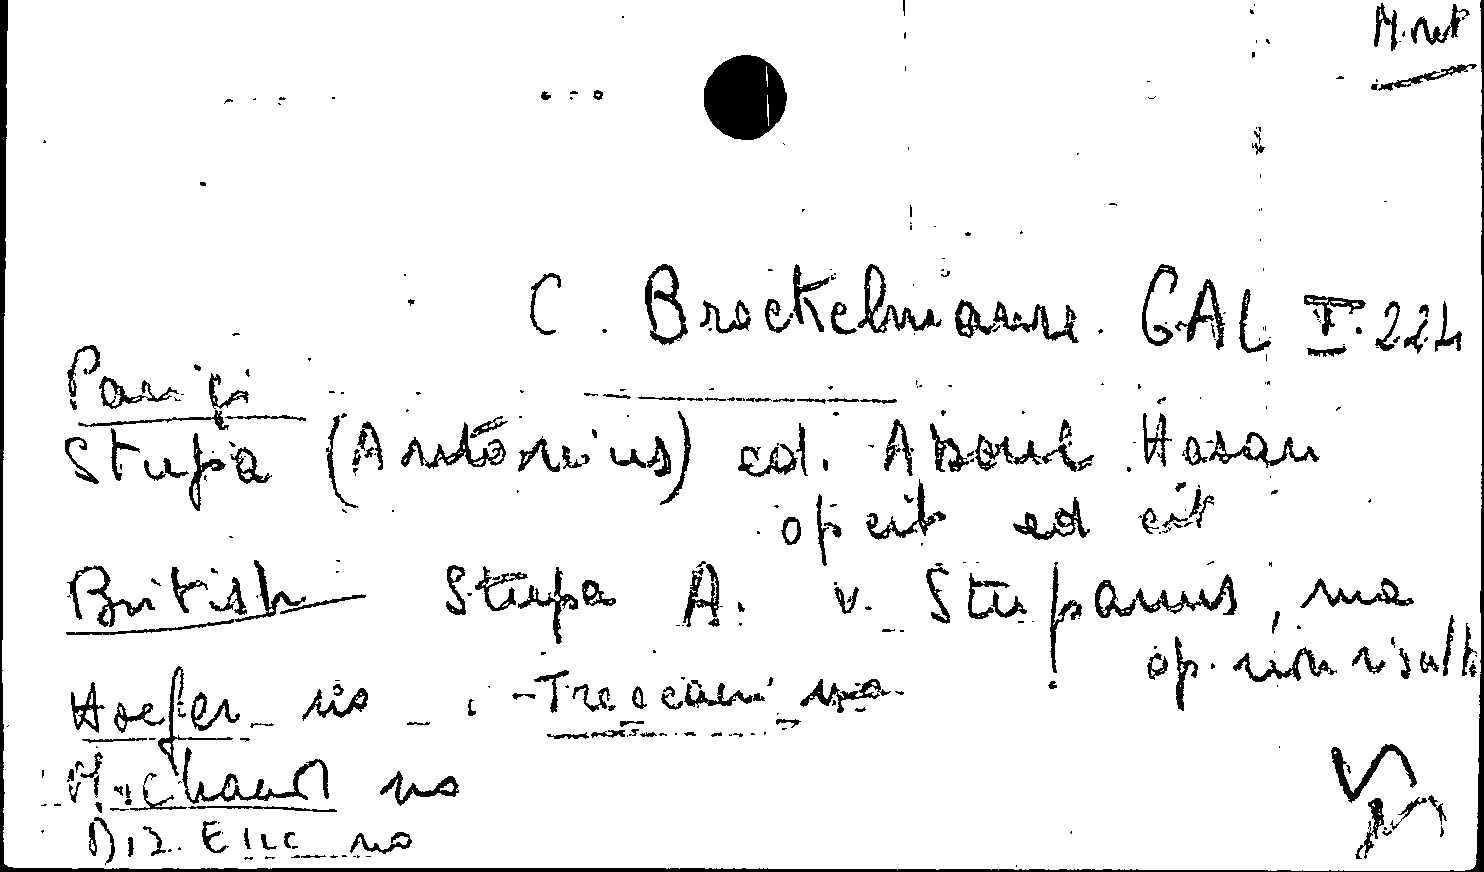 M. net
C. Brockelmann. GAL I. 224
Parigi
Stupa (Antonius) ed. Aboul Hasan
op cit ed cit
British Stupa A. v. Stupanus, ma
op. non risulta
Hoefer no - Treccani no
Michaud no
Diz. Enc no